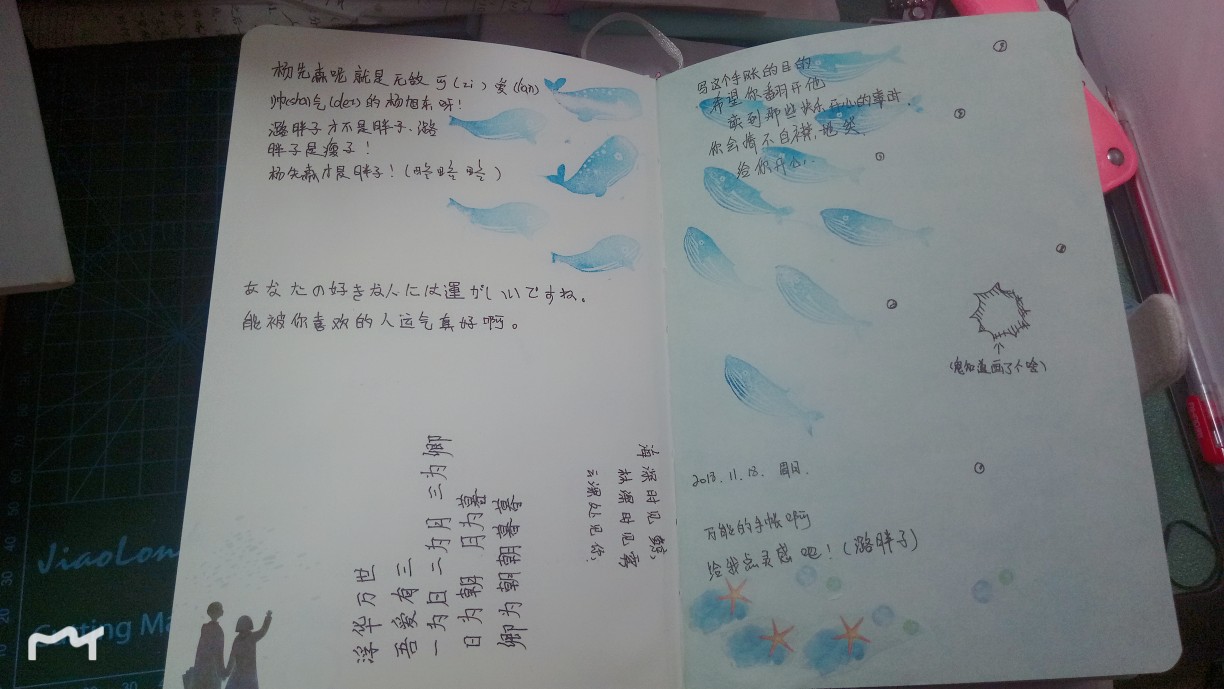 杨先森呢就是无敌可(zi)爱(lan)
帅(shai)气(de2)的杨旭东呀!
潞胖子才不是胖子.潞
胖子是瘦子!
杨先森才是胖子!(略略略)
あなたの好きな人には運がいいですね。
能被你喜欢的人运气真好啊。
浮华万世
吾爱有三
一为日 二为月 三为卿
日为朝 月为暮
卿为朝朝暮暮
海深时见鲸,
林深时见雾
云深处见你.
写这个手账的目的
希望你翻开他
读到那些快乐开心的事时.
你会情不自禁地笑
给你开心..
(鬼知道画了个啥)
2018.11.18. 周日.
万能的手帐啊
给我点灵感吧!(潞胖子)
JiaoLon
Cutting Ma